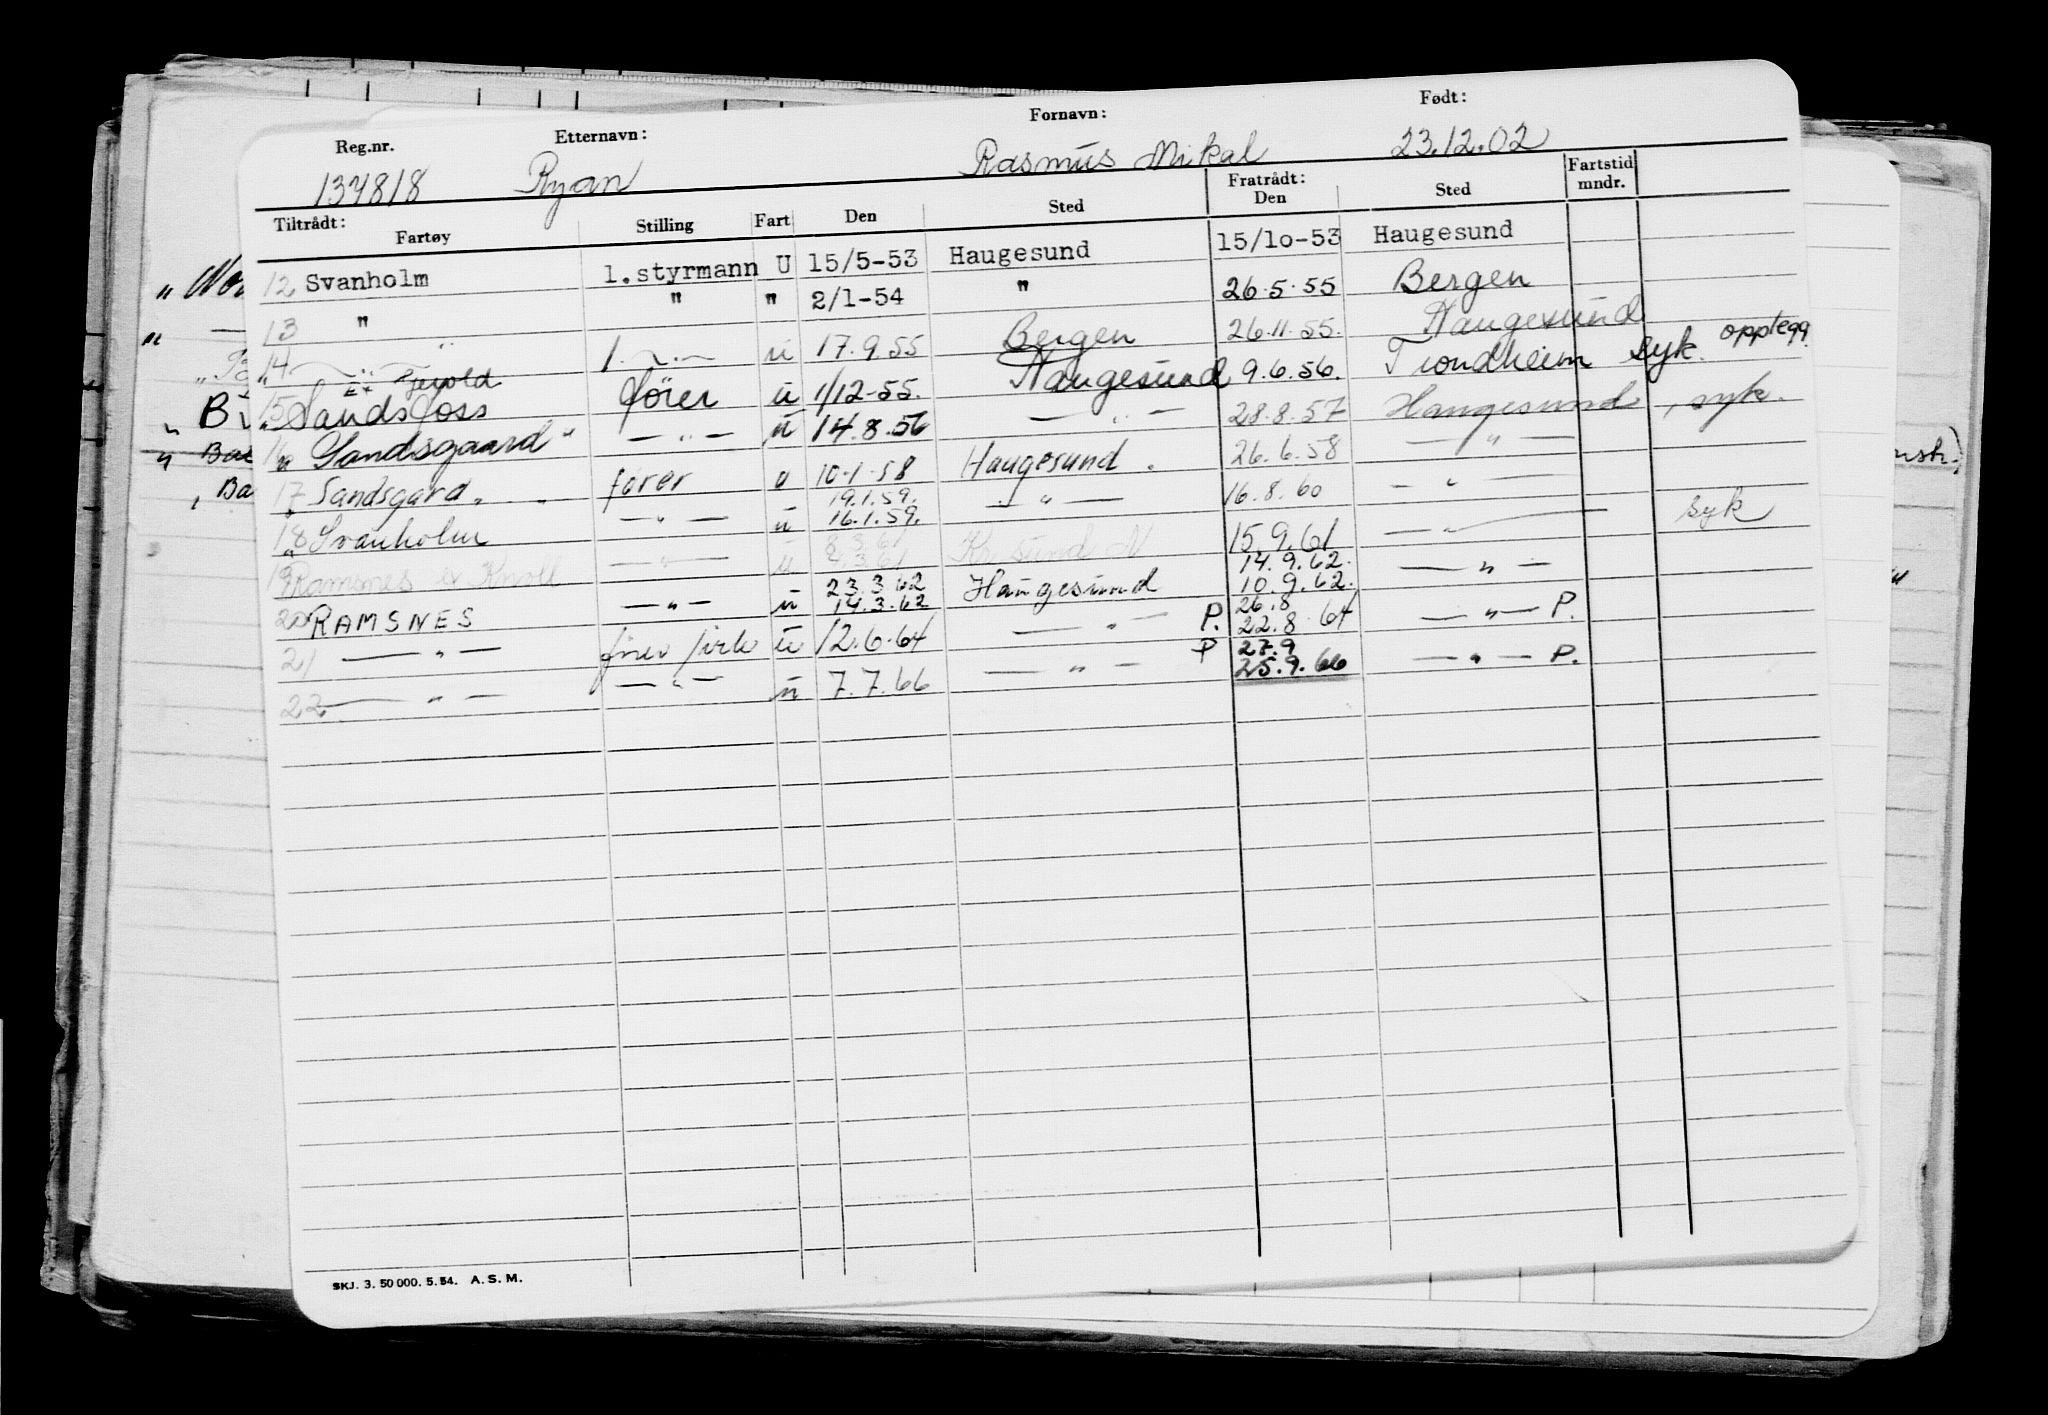 Reg.nr. Etternavn: Fornavn: Født:
134818 Ryan Rasmus Mikal 23.12.02
Tiltrådt: Fratrådt: Fartstid
Fartøy Stilling Fart Den Sted Den Sted mndr.
12 Svanholm 1.styrmann U 15/5-53 Haugesund 15/10-53 Haugesund
13 " " " 2/1-54 " 26.5.55 Bergen
14 — " — 1. — " — u 17.9.55 Bergen 26.11.55. Haugesund
Ex
15 " Sandsfoss fører u 1/12-55. Haugesund 9.6.56. Trondheim syk. opplegg
16 " Sandsgaard " — " — u 14.8.56 — " — 28.8.57 Haugesund, syk.
17 " Sandsgard " fører u 10.1.58 Haugesund. 26.6.58 — " —
19.1.59.
18 " Svanholm — " — u 16.1.59. — " — 16.8.60 — " —
19 Ramsnes ex Knoll — " — u 8.3.61 Kr. sund N 15.9.61 — " — syk
23.3.62 14.9.62.
20 RAMSNES — " — u 14.3.62 Haugesund 10.9.62. — " —
26.8
21 — " — fører u 12.6.64 — " — P. 22.8.64 — " — P.
27.9
22 — " — — " — u 7.7.66 — " — P 25.9.66 — " — P.
SKJ. 3. 50 000. 5. 54. A. S. M.